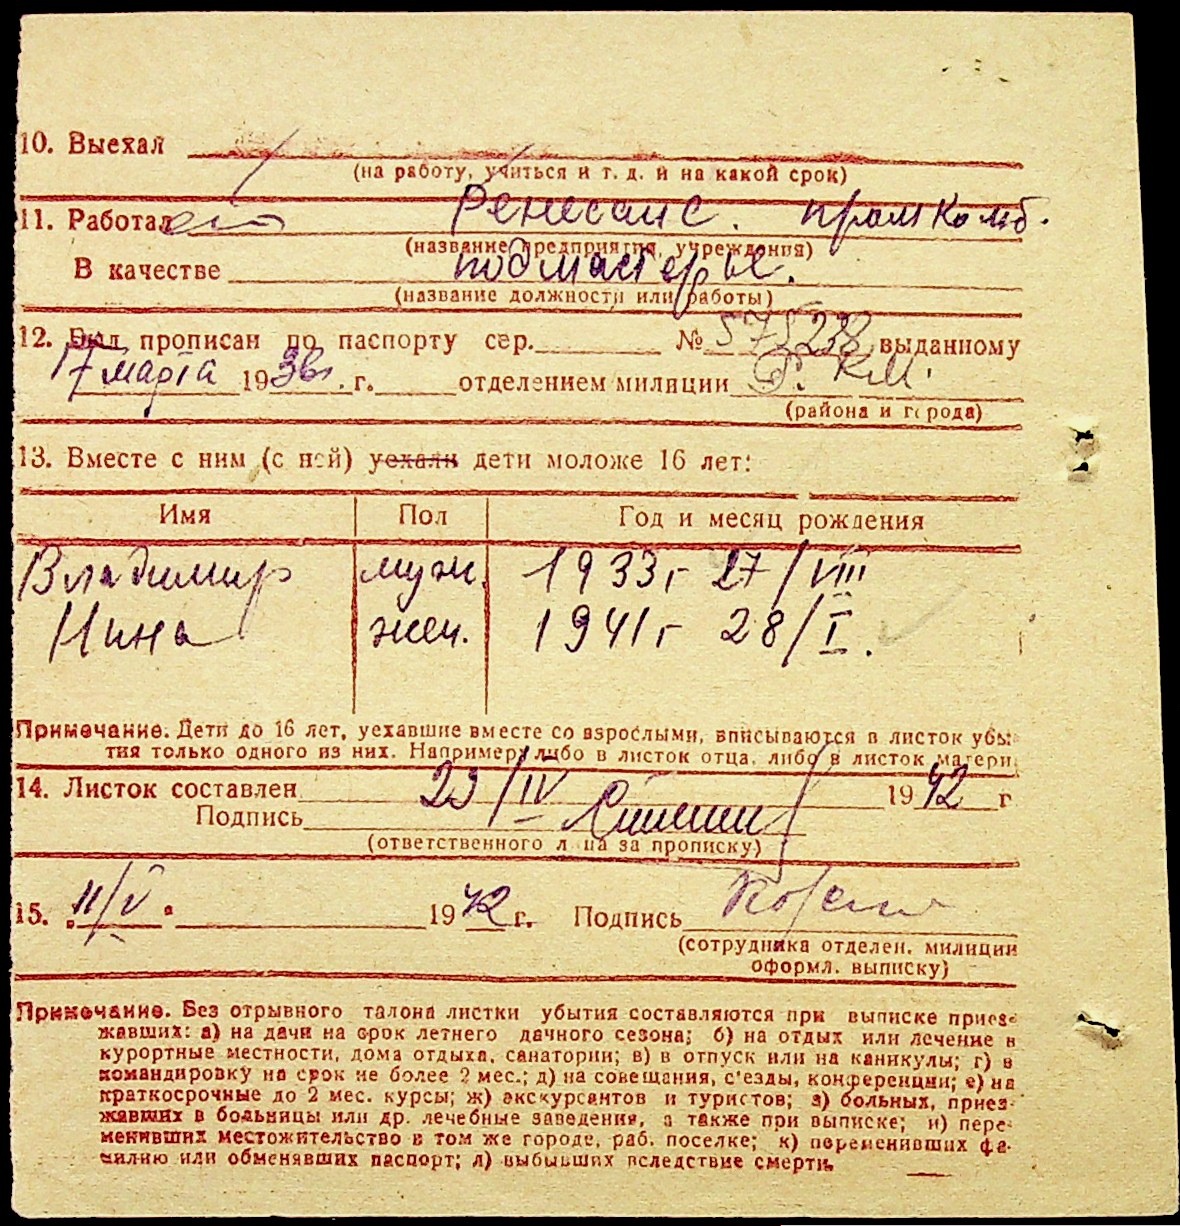 10. Выехал
(на работу, учиться и т. д. и на какой срок)
11. Работал Ренесанс. промкомб.
(название предприятия, учреждения)
В качестве подмастерье.
(название должности или работы)
12. Был прописан по паспорту сер. № 575238 выданному
17 марта 1938 г. отделением милиции Р. К.М.
(района и города)
13. Вместе с ним (с ней) уехали дети моложе 16 лет:
Имя Пол Год и месяц рождения
Владимир муж. 1933 г 27/VIII
Нина жен. 1941 г 28/I.
Примечание. Дети до 16 лет, уехавшие вместе со взрослыми, вписываются в листок убы-
тия только одного из них. Например: либо в листок отца, либо в листок матери.
14. Листок составлен 29/IV 1942 г
Подпись
(ответственного лица за прописку)
15. „11/V" 1942 г. Подпись
(сотрудника отделен. милиции
оформл. выписку)
Примечание. Без отрывного талона листки убытия составляются при выписке приез-
жавших: а) на дачи на срок летнего дачного сезона; б) на отдых или лечение в
курортные местности, дома отдыха, санатории; в) в отпуск или на каникулы; г) в
командировку на срок не более 2 мес.; д) на совещания, с'езды, конференции; е) на
краткосрочные до 2 мес. курсы; ж) экскурсантов и туристов; з) больных, приез-
жавших в больницы или др. лечебные заведения, а также при выписке; и) пере-
менивших местожительство в том же городе, раб. поселке; к) переменивших фа-
милию или обменявших паспорт; л) выбывших вследствие смерти.